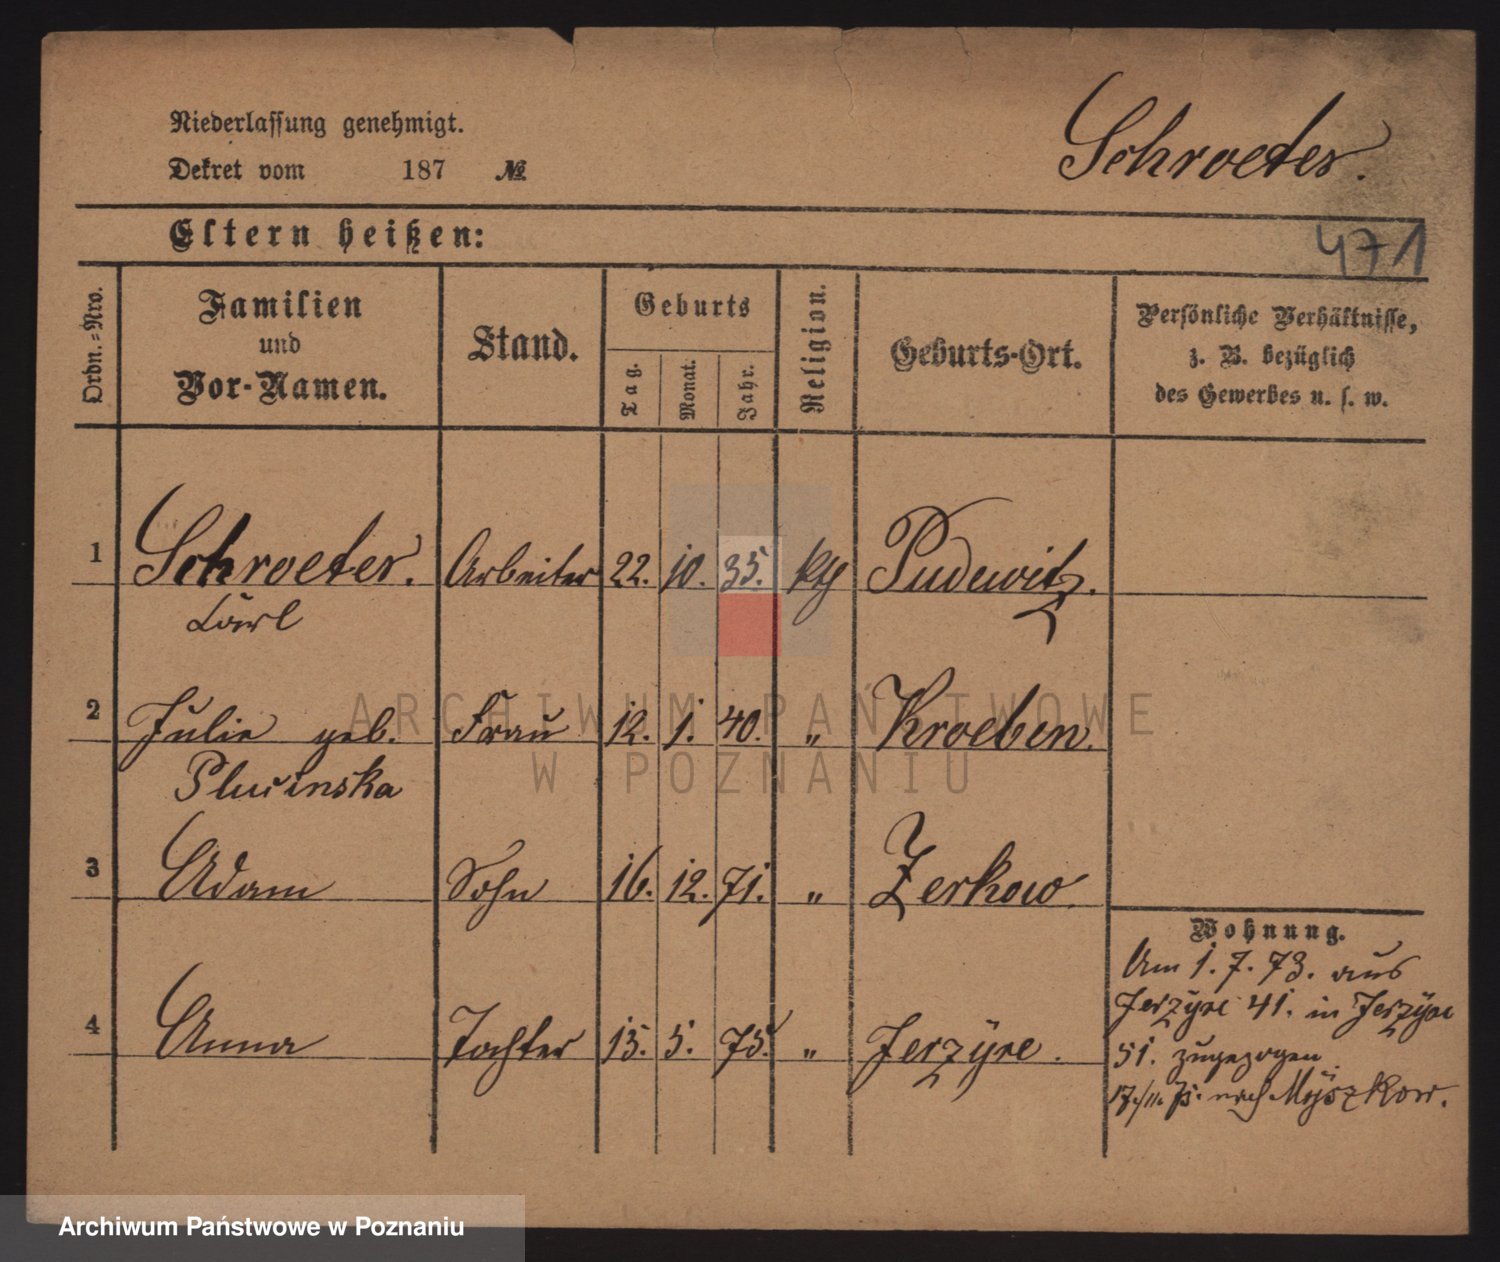 Niederlassung genehmigt.
Dekret vom 187 №
Schroeter.
Eltern heißen:
471
Ordn.-Nro.
Familien
und
Vor-Namen.
Stand.
Geburts
Tag.
Monat.
Jahr.
Religion.
Geburts-Ort.
Persönliche Verhältnisse,
z. B. bezüglich
des Gewerbes u. s. w.
1 Schroeter. Arbeiter 22. 10. 35. kth Pudewitz.
Carl
2 Julie geb. Frau 12. 1. 40. " Kroeben.
Plucinska
3 Adam Sohn 16. 12. 71. " Zerkow.
4 Anna Tochter 15. 5. 75. " Jerzyce.
Wohnung.
Am 1. 7. 73. aus
Jerzyce 41. in Jerzyce
51. zugezogen
17./11. 75. nach Myszkow.
ARCHIWUM PAŃSTWOWE
W POZNANIU
Archiwum Państwowe w Poznaniu